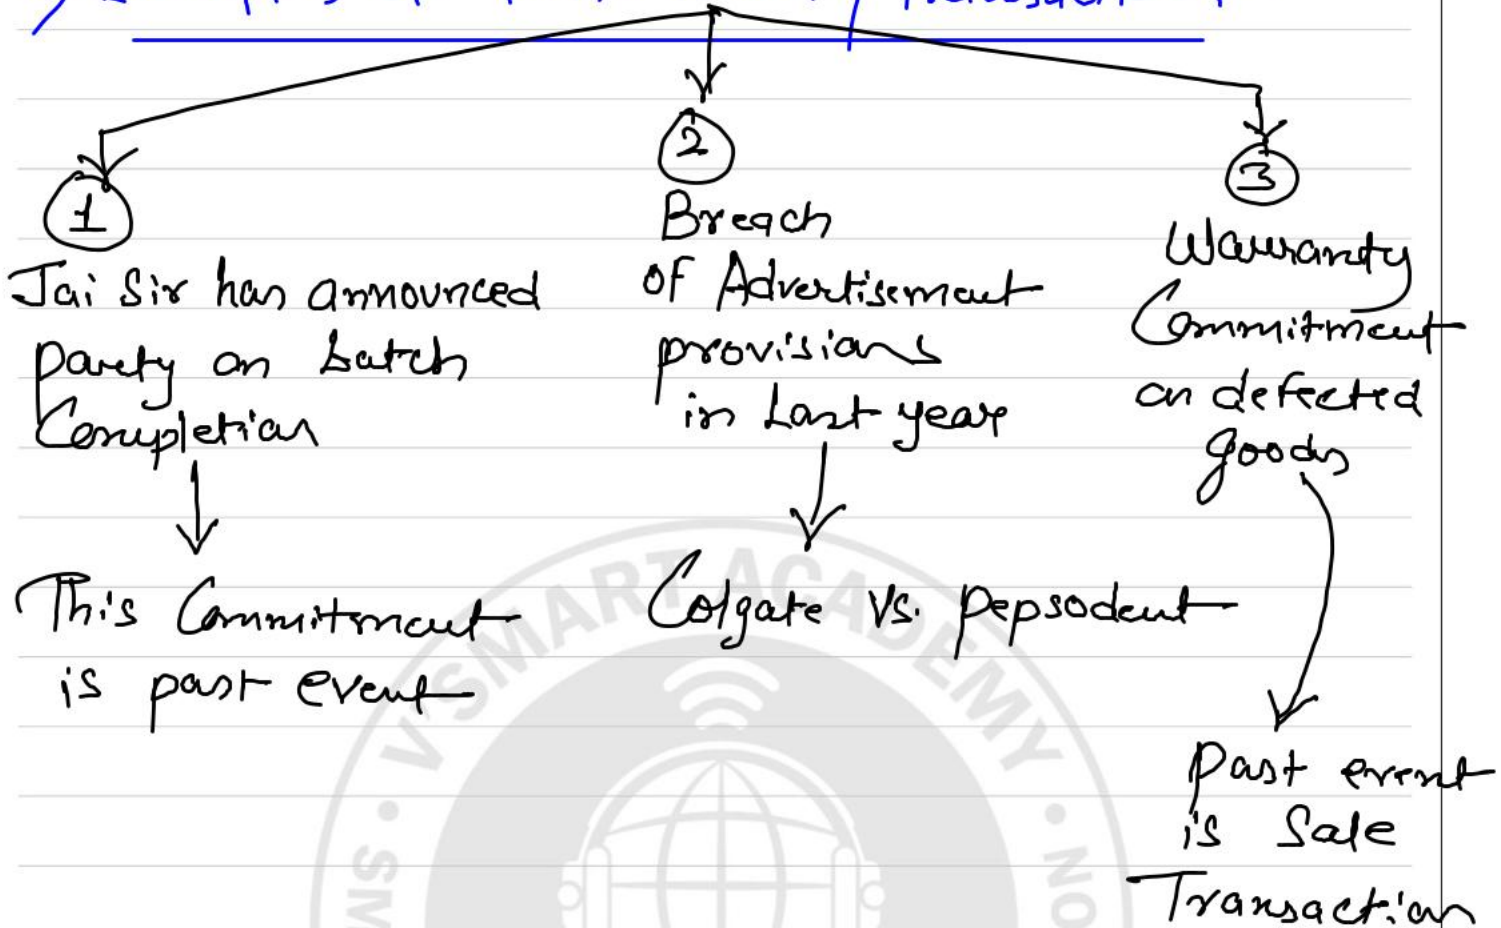 1
Jai Sir has announced
party on batch
Completion
This Commitment
is past event
2
Breach
of Advertisement
provisions
in Last year
Colgate Vs. Pepsodent
3
Warranty
Commitment
on defected
goods
Past event
is Sale
Transaction
V'SMART ACADEMY